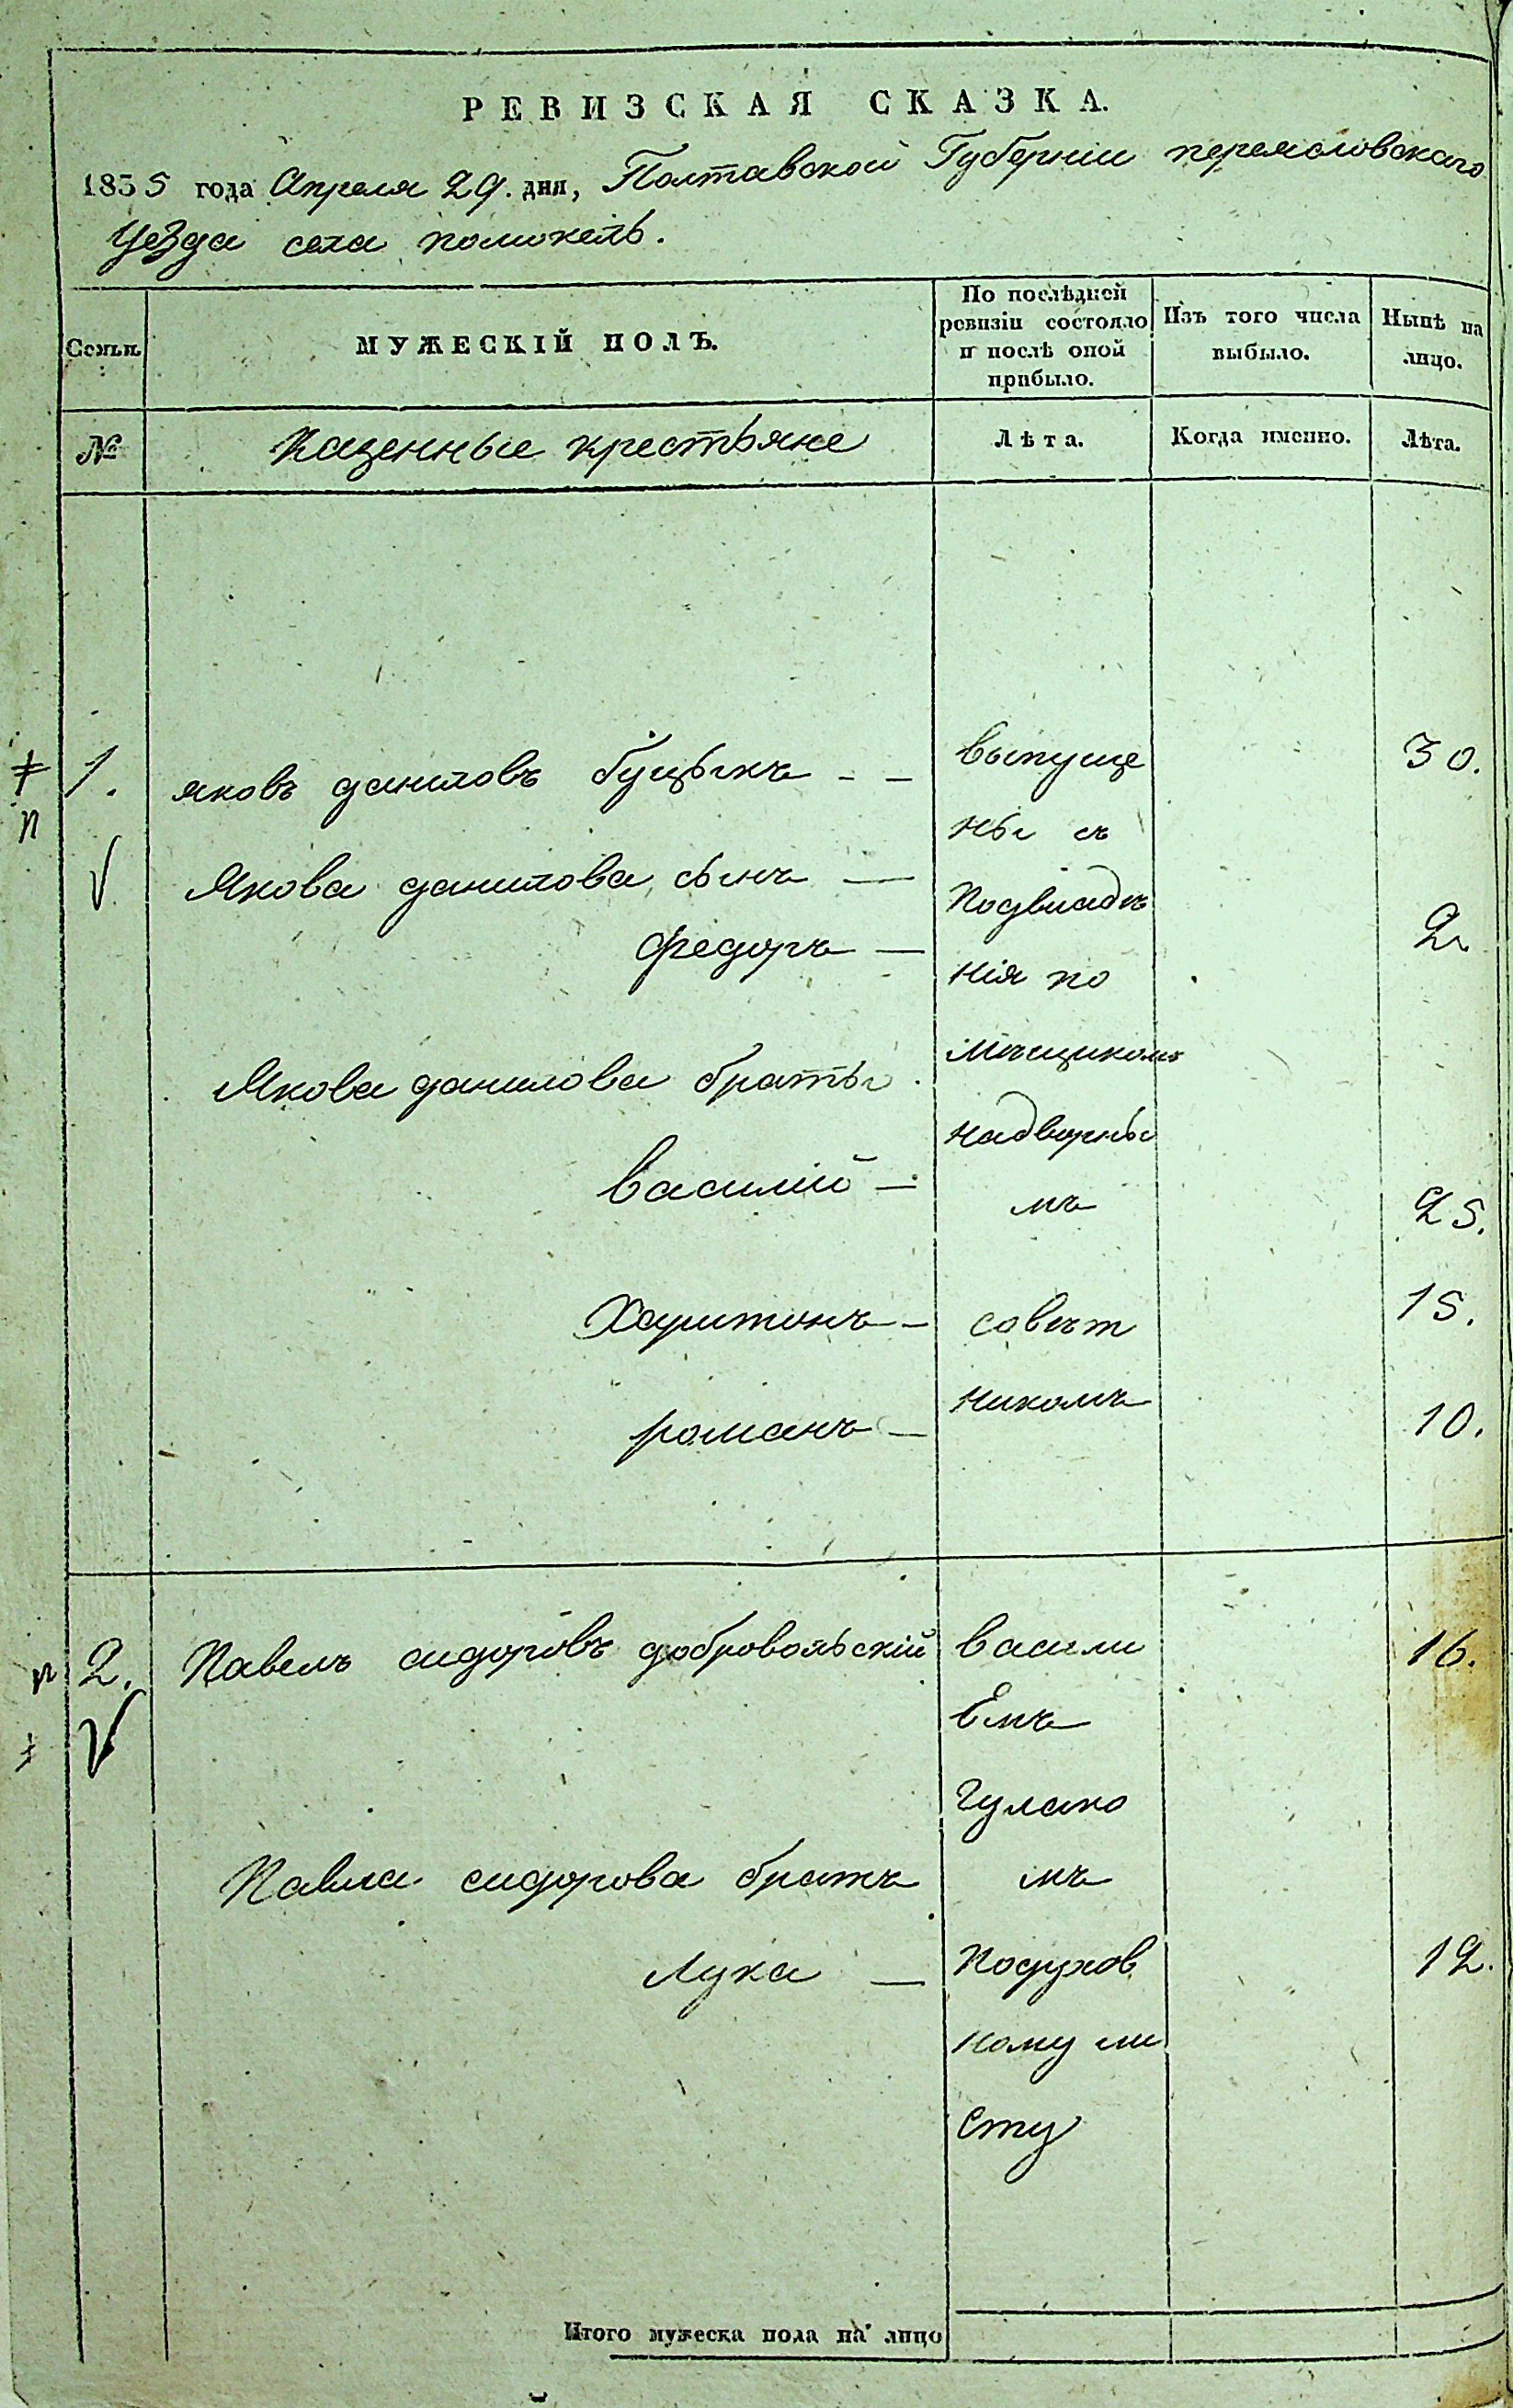 РЕВИЗСКАЯ СКАЗКА.
1835 года Апреля 29. дня, Полтавской Губернии переясловского
Уезда села помокель.
Семьи
МУЖЕСКІЙ ПОЛЪ.
По послѣдней ревизіи состояло и послѣ оной прибыло.
Изъ того числа выбыло.
Нынѣ на лицо.
№
Казенные крестьяне
Лѣта.
Когда именно.
Лѣта.
1. яковъ даниловъ буцыкъ - - выпуще 30.
п
ны съ
Якова данилова сынъ —
подвладѣ
федоръ — 2
нія по
мѣщикомъ
Якова данилова браты
надворны
василій — 25.
мъ
Харитонъ — совѣт 15.
никомъ
романъ — 10.
п 2. Павелъ сидоровъ добровольскій васили 16.
Емъ
гулако
Павла сидорова братъ мъ
лука — подухов 12.
ному ли
сту
Итого мужеска пола на лицо